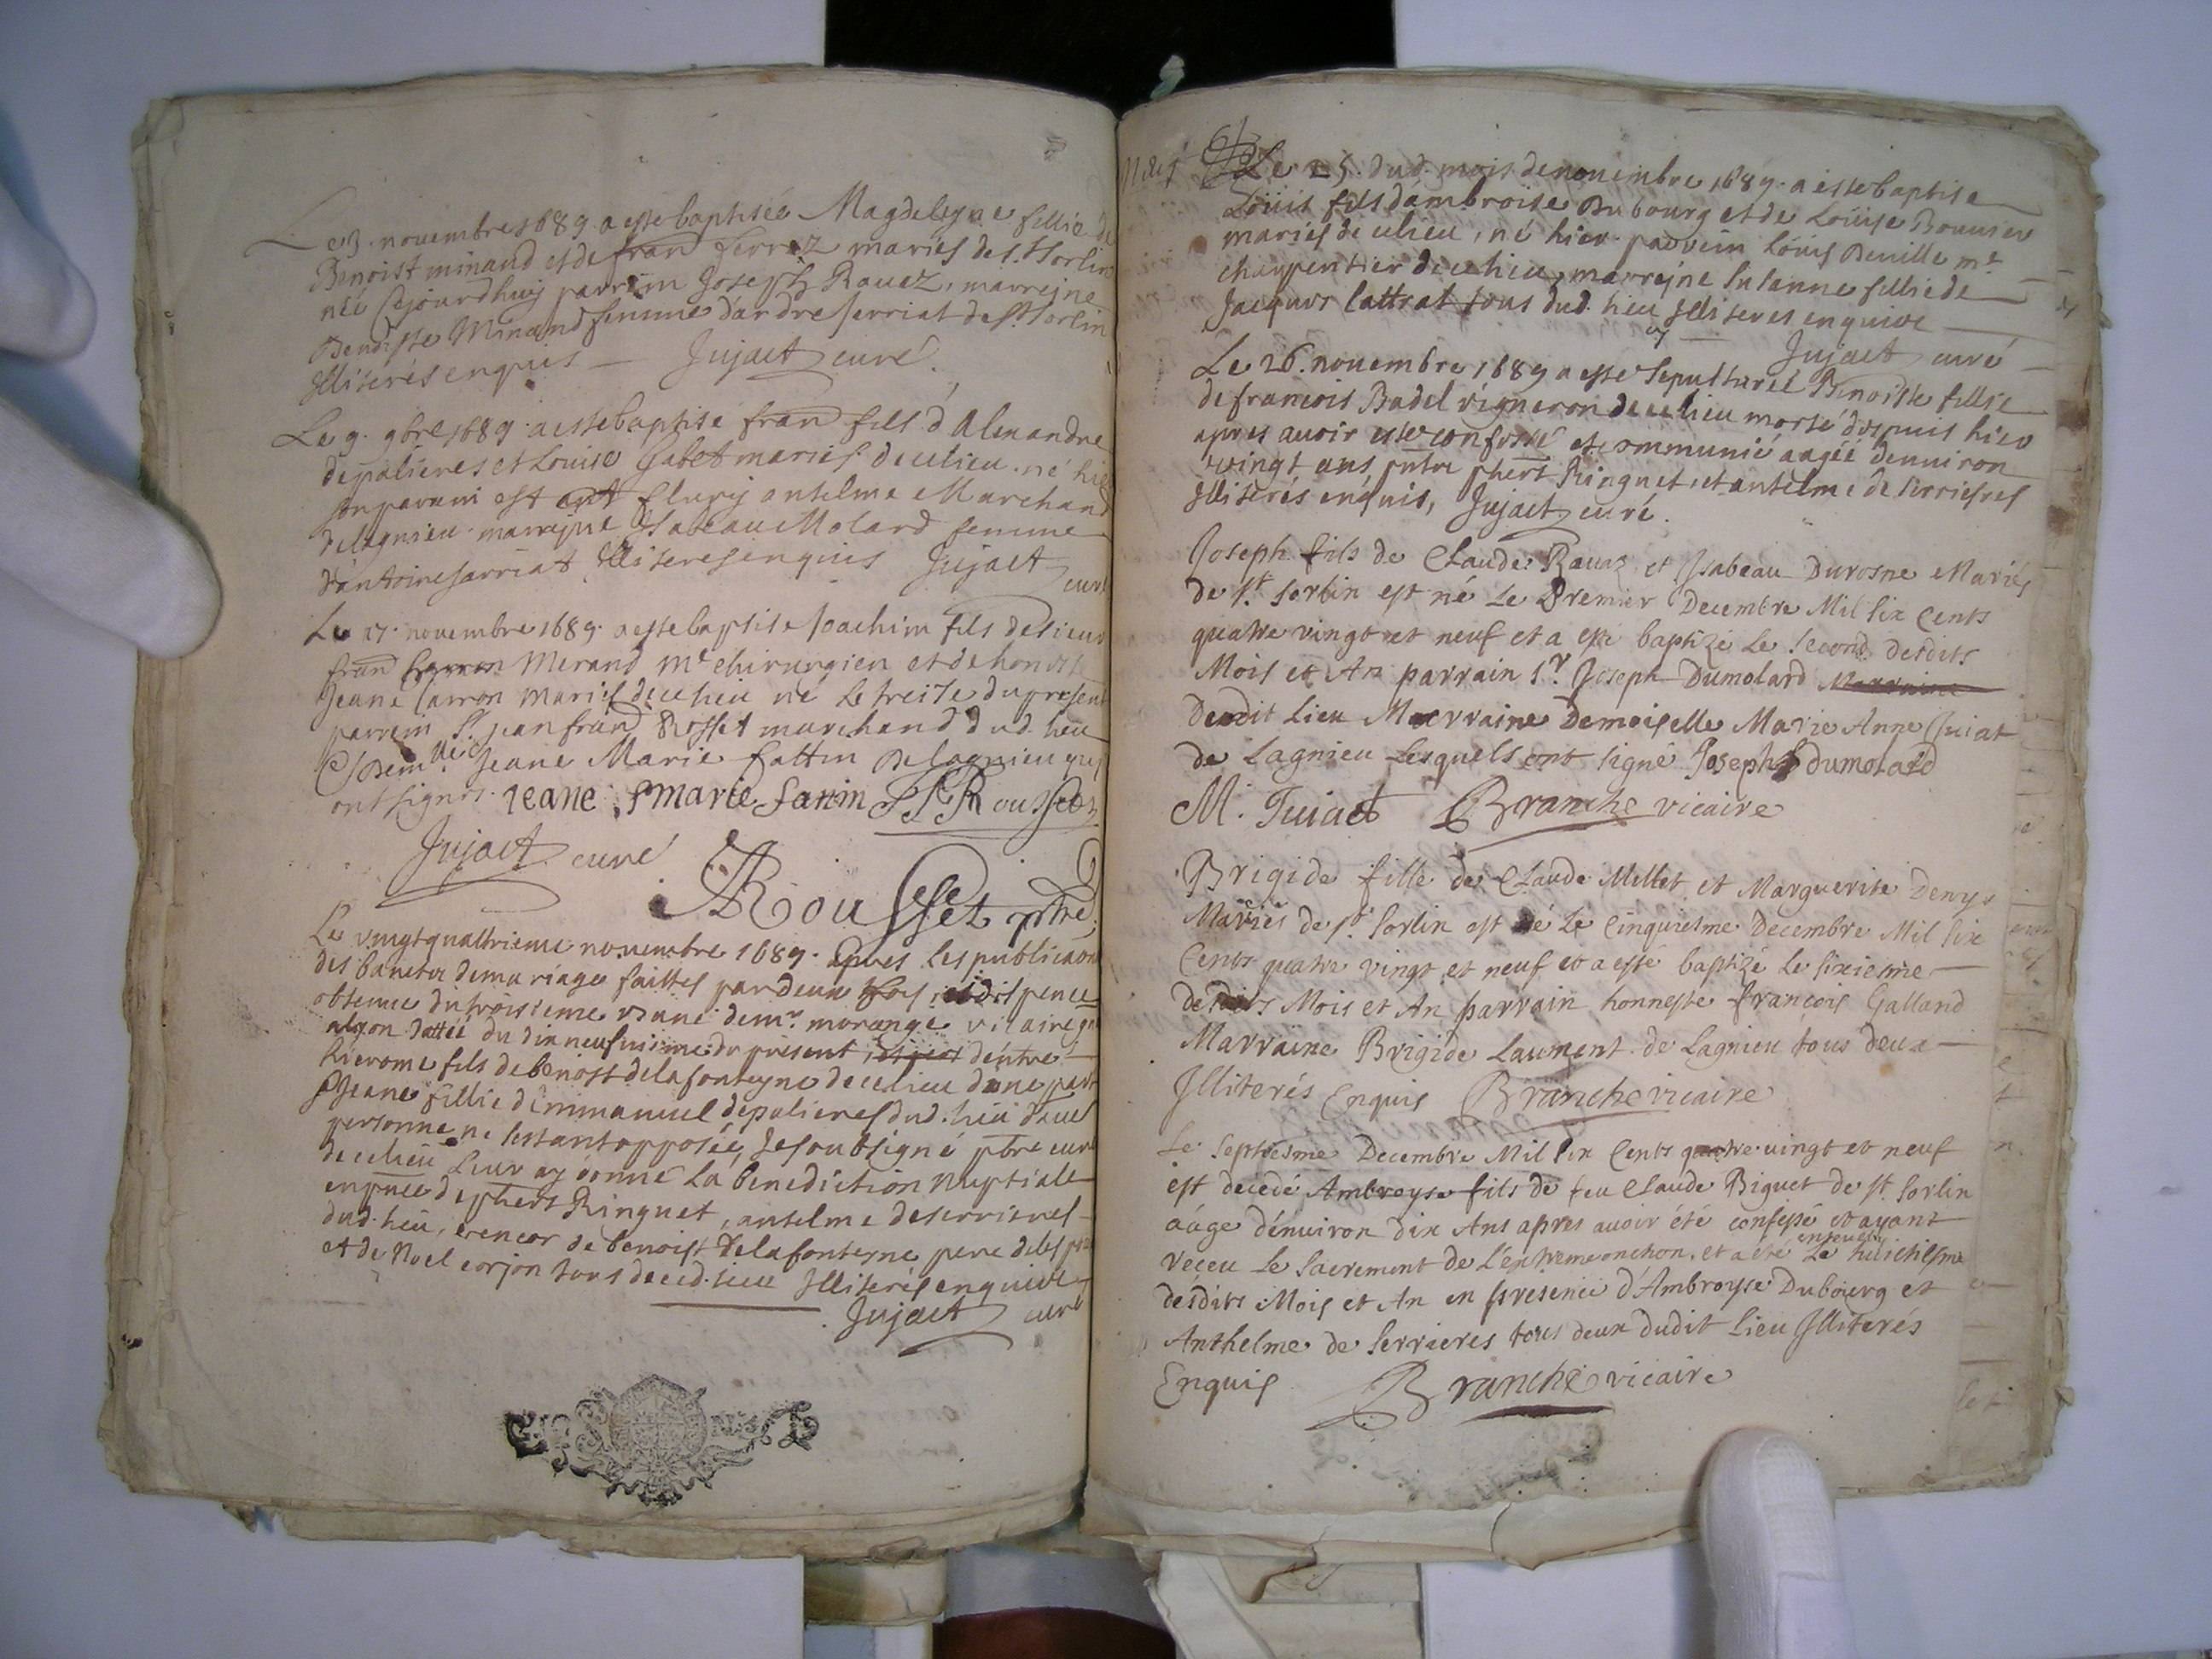 Le 3. novembre 1689 a esté baptisée Magdeleyne fillie de
Benoist minand et de fran ferraz mariés de S.t Sorlin
née cejourdhuy parrein Joseph Rauaz, marreyne
Benoiste Minand femme d'andre serriat de S.t Sorlin
Illiterés enquis — Jujact curé.
Le 9. 9bre 1689. a esté baptise fran fils d'Alexandre
depalieres et Louise Gabet mariés de ce lieu. né hier
son parrain est fleury antelme Marchand
de lagnieu. marreyne Isabeau Molard femme
d'antoine sarriat Illiterés enquis Jujact
curé
Le 17. novembre 1689. a esté baptise Joachim fils de sieur
fran Merand Me chirurgien et de honeste
Jeane Carron mariés de ce lieu né le treise du present
parrein Sr. jean fran Rosset marchand dud. lieu
Dem.lle Jeane Marie fattin de lagnieu qui
ont signés. Jeane Marie fattin J F Rousset
Jujact curé
Rousset ptre
Le vingtquattrieme novembre 1689. apres les publicaons
des bancs de mariage faittes par deux fois, et dispence
obtenue du troisieme de mr. morange vicaire gnal
alyon dattée du dix neufuisime du présent, d'entre
hierome fils de benoist delafonteyne de ce lieu d'une part
Jeane fillie d'Emmanuel depalieres dud. lieu d'autre
personne ne s'estant opposée, Je soubsigné pbre curé
de ce lieu leur ay donné la benediction nuptiale
en pnce de phert Ringuet, antelme deserrieres
dud. lieu, encor de benoist delafonteyne pere
et de Noel corjon tous de ced. lieu Illiterés enquis
Jujact curé
Le 25. dud. mois de nouembre 1689. a esté baptise
Loüis fils d'ambroise Dubourg et de Loüise Bouuier
mariés de ce lieu, né hier. parrein Loüis Deuille me
charpentier de ce lieu, marreyne susanne fillie de
Jacques lattrat tous dud. lieu Illiteres enquis
Jujact curé
Le 26. nouembre 1689 a esté sepulturée Benoiste fillie
de francois Badel vigneron de ce lieu morte depuis hier
apres auoir esté confessée et communié aagée denuiron
vingt ans phert Ringuet, et antelme de serrieres
Illiterés enquis, Jujact curé.
Joseph fils de Claude Rauaz et Isabeau Durosne Mariés
de St. Sorlin est né Le Premier Decembre Mil six Cents
quatre vingt et neuf et a esté baptizé Le second desdits
Mois et An parrain Sr. Joseph Dumolard Marraine
Deudit Lieu Marraine Demoiselle Marie Anne Jujat
de Lagnieu Lesquels ont signé Joseph dumolard
M. Jujact Branche vicaire
Brigide fille de Claude Mellet et Marguerite Denys
Mariés de St. Sorlin est né Le Cinquiesme Decembre Mil six
Cents quatre vingt et neuf et a esté baptizé Le sixiesme
desdits Mois et An parrain honneste françois Galland
Marraine Brigide Laument de Lagnieu tous deux
Illiterés Enquis Branche vicaire
Le septiesme Decembre Mil six Cents quatre uingt et neuf
est decedé Ambroyse fils de feu Claude Biguet de St. Sorlin
aâge dénuiron dix Ans apres auoir été confessé et ayant
receu Le sacrement de L'extremeonction, et a été enseueli Le huictiesme
desdits Mois et An en presence d'Ambroyse Dubourg et
Anthelme de Serrieres tous deux dudit Lieu Illiterés
Enquis Branche vicaire